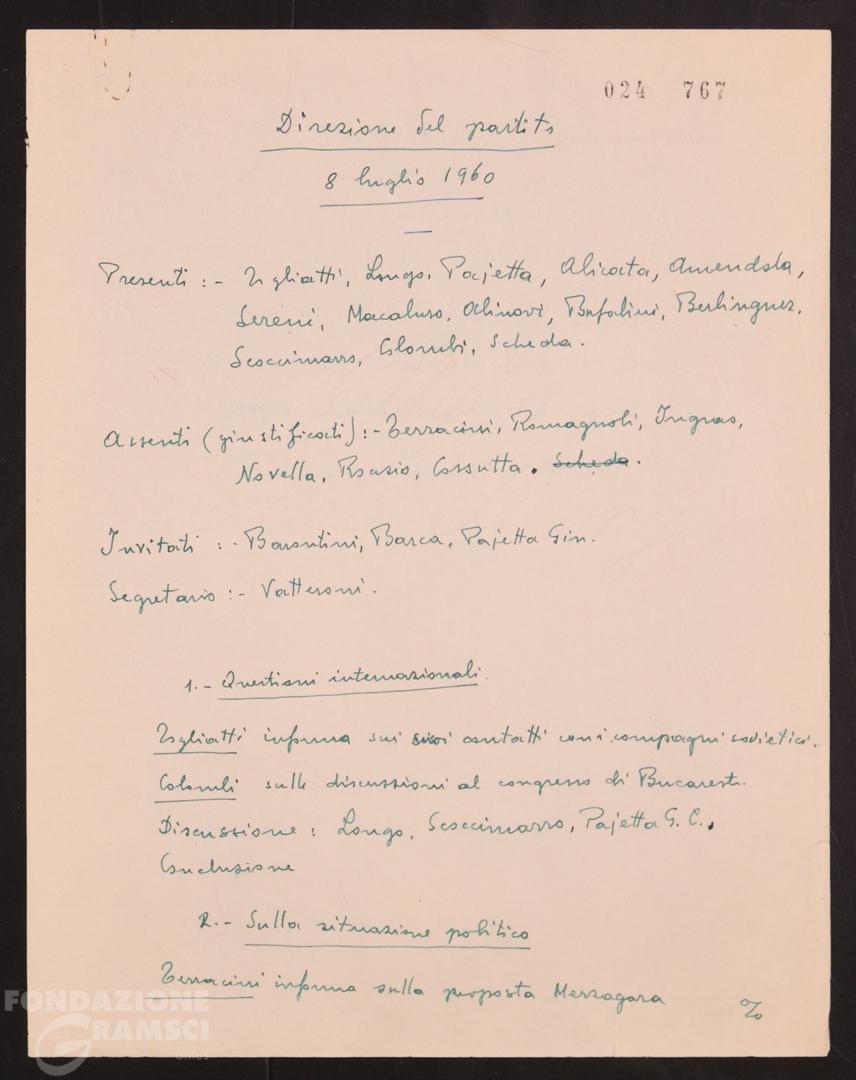 024 767
Direzione del partito
8 luglio 1960
—
Presenti :- Togliatti, Longo, Pajetta, Alicata, Amendola,
Sereni, Macaluso, Alinovi, Bufalini, Berlinguer,
Scoccimarro, Colombi, Scheda.
Assenti (giustificati) :- Terracini, Romagnoli, Ingrao,
Novella, Roasio, Cossutta. Scheda.
Invitati :- Barontini, Barca, Pajetta Gin.
Segretario :- Vatteroni.
1.- Questioni internazionali.
Togliatti informa sui suoi contatti con i compagni sovietici.
Colombi sulle discussioni al congresso di Bucarest.
Discussione : Longo, Scoccimarro, Pajetta G. C.,
Conclusione
2.- Sulla situazione politica
Terracini informa sulla proposta Merzagora
%
FONDAZIONE
GRAMSCI
onlus